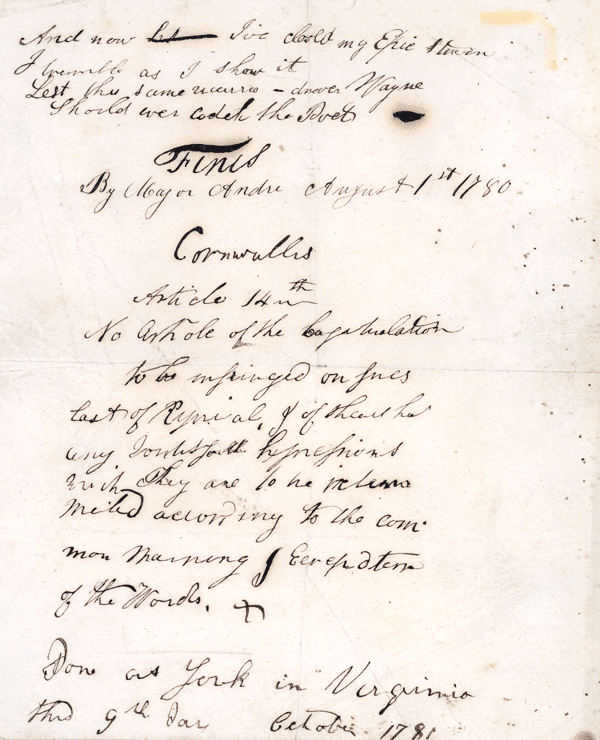 And now Let I've closd my Epic strain
I tremble as I show it
Lest this same warrio - drover Wayne
Should ever catch the Poet
Finis
By Major Andre August 1st 1780
Cornwallis
Article 14th
No Article of the Capatulation
to be infringed on
last of Reprial, if
any Expressions
they are to be
according to the com-
mon Maining &
of the Words.
Don at York in Virginia
this 9th Day October 1781